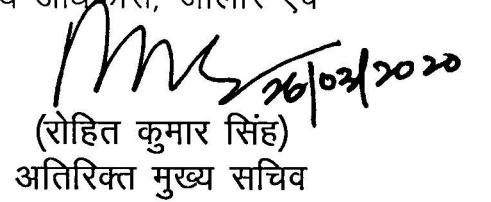 जालोर एवं
26/03/2020
(रोहित कुमार सिंह)
अतिरिक्त मुख्य सचिव